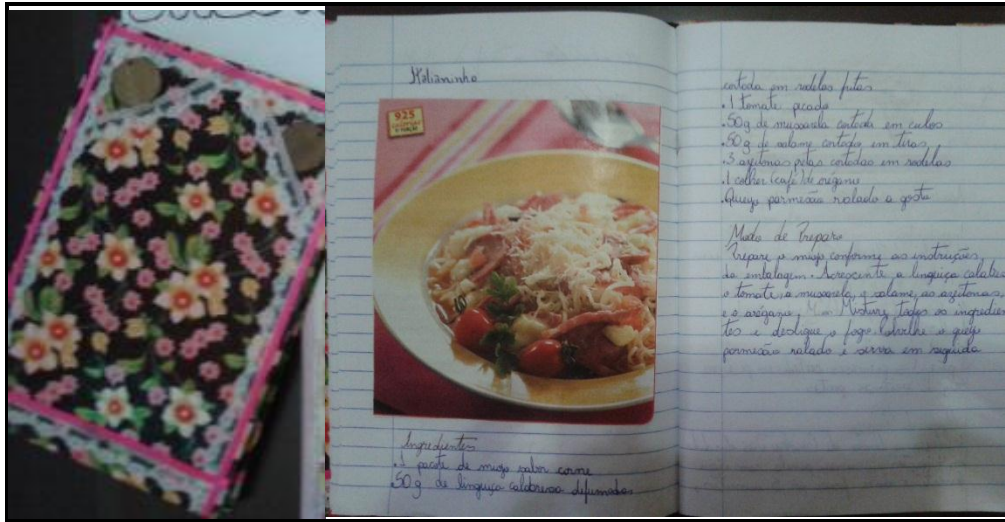 Italianinho
925
Ingredientes
.1 pacote de miojo sabor carne
.50 g de linguiça calabresa defumada
cortada em rodelas fritas
.1 tomate picado
.50g de mussarela cortada em cubos
.50 g de salame cortado em tiras
.3 azeitonas pretas cortadas em rodelas
.1 colher (café) de orégano
.Queijo parmesão ralado a gosto
Modo de Preparo
Prepare o miojo conforme as instruções
da embalagem. Acrescente a linguiça
o tomate, a mussarela, o salame, as azeitonas
e o orégano. Misture todos os ingredien
tes e desligue o fogo. Polvilhe o queijo
parmesão ralado e sirva em seguida